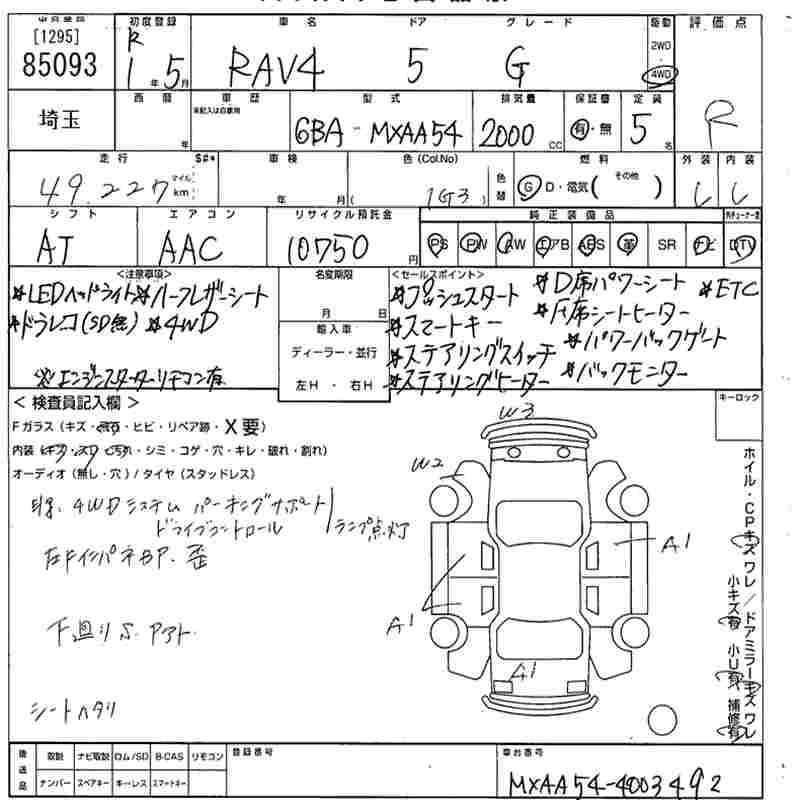 [1295]
85093
埼玉
初度登録
R
1年 5月
車名
RAV4
ドア
5
グレード
G
駆動
2WD
4WD
評価点
R
西暦
年
車歴
未記入は自家用
型式
6BA-MXAA54
排気量
2000 CC
保証書
有・無
定員
5名
走行
49.227
マイル
km
S#*
車検
年 月
色(Col.No)
(1G3)
色替
燃料
G D・電気(その他)
外装
内装
シフト
AT
エアコン
AAC
リサイクル預託金
10750円
純正装備品
PS PW AW エアB ABS 革 SR ナビ DTV
<注意事項>
*LEDヘッドライト*ハーフレザーシート
*ドラレコ(SD無) *4WD
※エンジンスターターリモコン有
名変期限
月 日
輸入車
ディーラー・並行
左H・右H
<セールスポイント>
*プッシュスタート *D席パワーシート *ETC
*スマートキー *F席シートヒーター
*ステアリングスイッチ *パワーバックゲート
*ステアリングヒーター *バックモニター
<検査員記入欄>
Fガラス(キズ・飛石・ヒビ・リペア跡・X要)
内装(キズ・スリ・汚れ・シミ・コゲ・穴・キレ・破れ・割れ)
オーディオ(無し・穴)/タイヤ(スタッドレス)
4WDシステム パーキングサポート
ドライブコントロール
ランプ点灯
左Fインパネ 歪
下廻りS.
シートヘタリ
キーロック
W3
W2
A1
A1
A1
ホイル・CPキズ ワレ/ドアミラーキズ ワレ
小キズ有 小U有 補修有
後送品
取説 ナビ取説 ロム/SD B-CAS リモコン
ナンバー スペアキー キーレス スマートキー
登録番号
車台番号
MXAA54-4003492